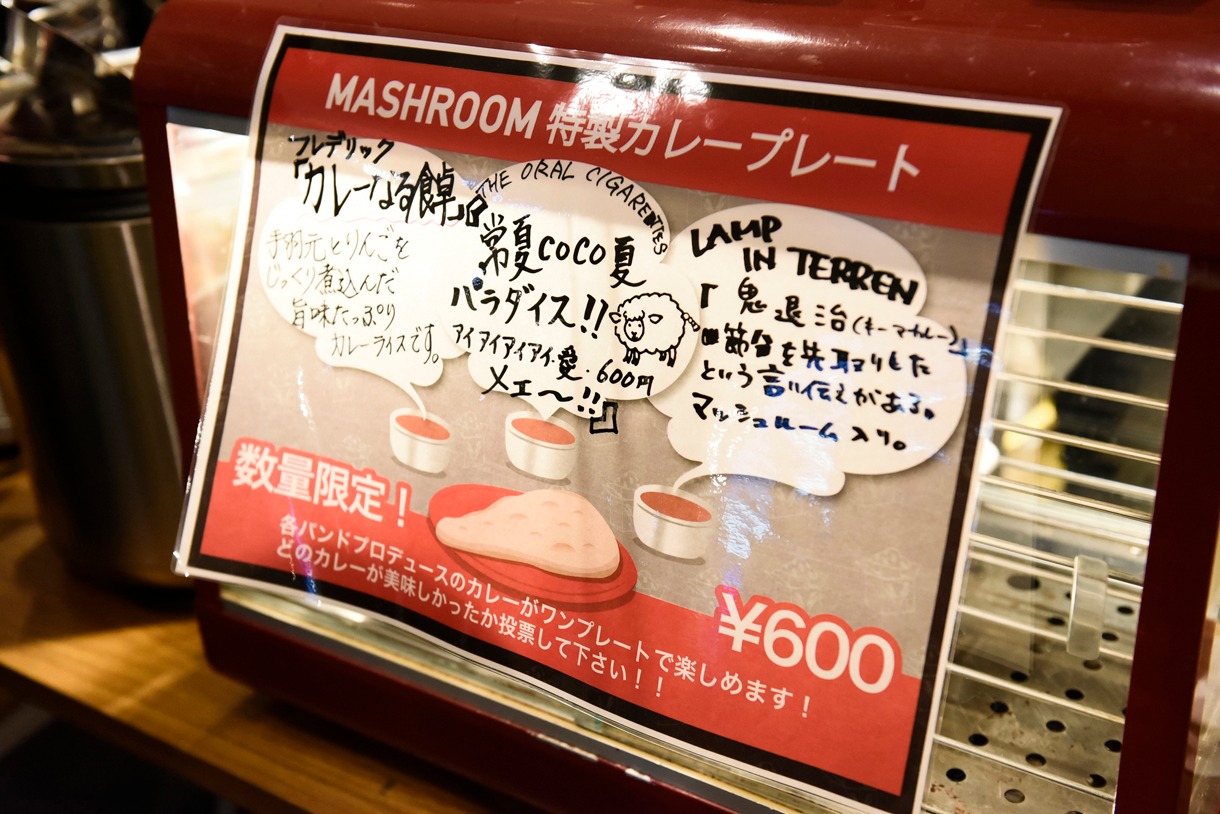 MASHROOM 特製カレープレート
フレデリック
「カレーなる餉」
手羽元とりんごを
じっくり煮込んだ
旨味たっぷり
カレーライスです。
THE ORAL CIGARETTES
常夏COCO夏
パラダイス!!
アイアイアイアイ愛・600円
メェ〜!!
LAMP
IN TERREN
「鬼退治(キーマカレー)」
節分を先取りした
という言い伝えがある。
マッシュルーム入り。
数量限定!
各バンドプロデュースのカレーがワンプレートで楽しめます!
どのカレーが美味しかったか投票して下さい!!
¥600